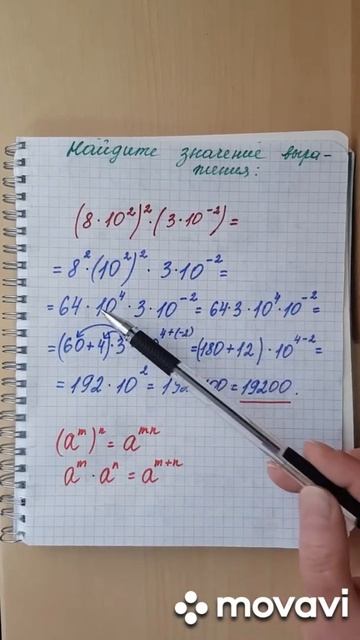 Найдите значение выра-
жения:
(8·10²)²·(3·10⁻²)=
=8²·(10²)²·3·10⁻²=
=64·10⁴·3·10⁻²=64·3·10⁴·10⁻²=
=(60+4)·3 10⁴⁺⁽⁻²⁾=(180+12)·10⁴⁻²=
=192·10²=192 00=19200.
(aᵐ)ⁿ=aᵐⁿ
aᵐ·aⁿ=aᵐ⁺ⁿ
movavi